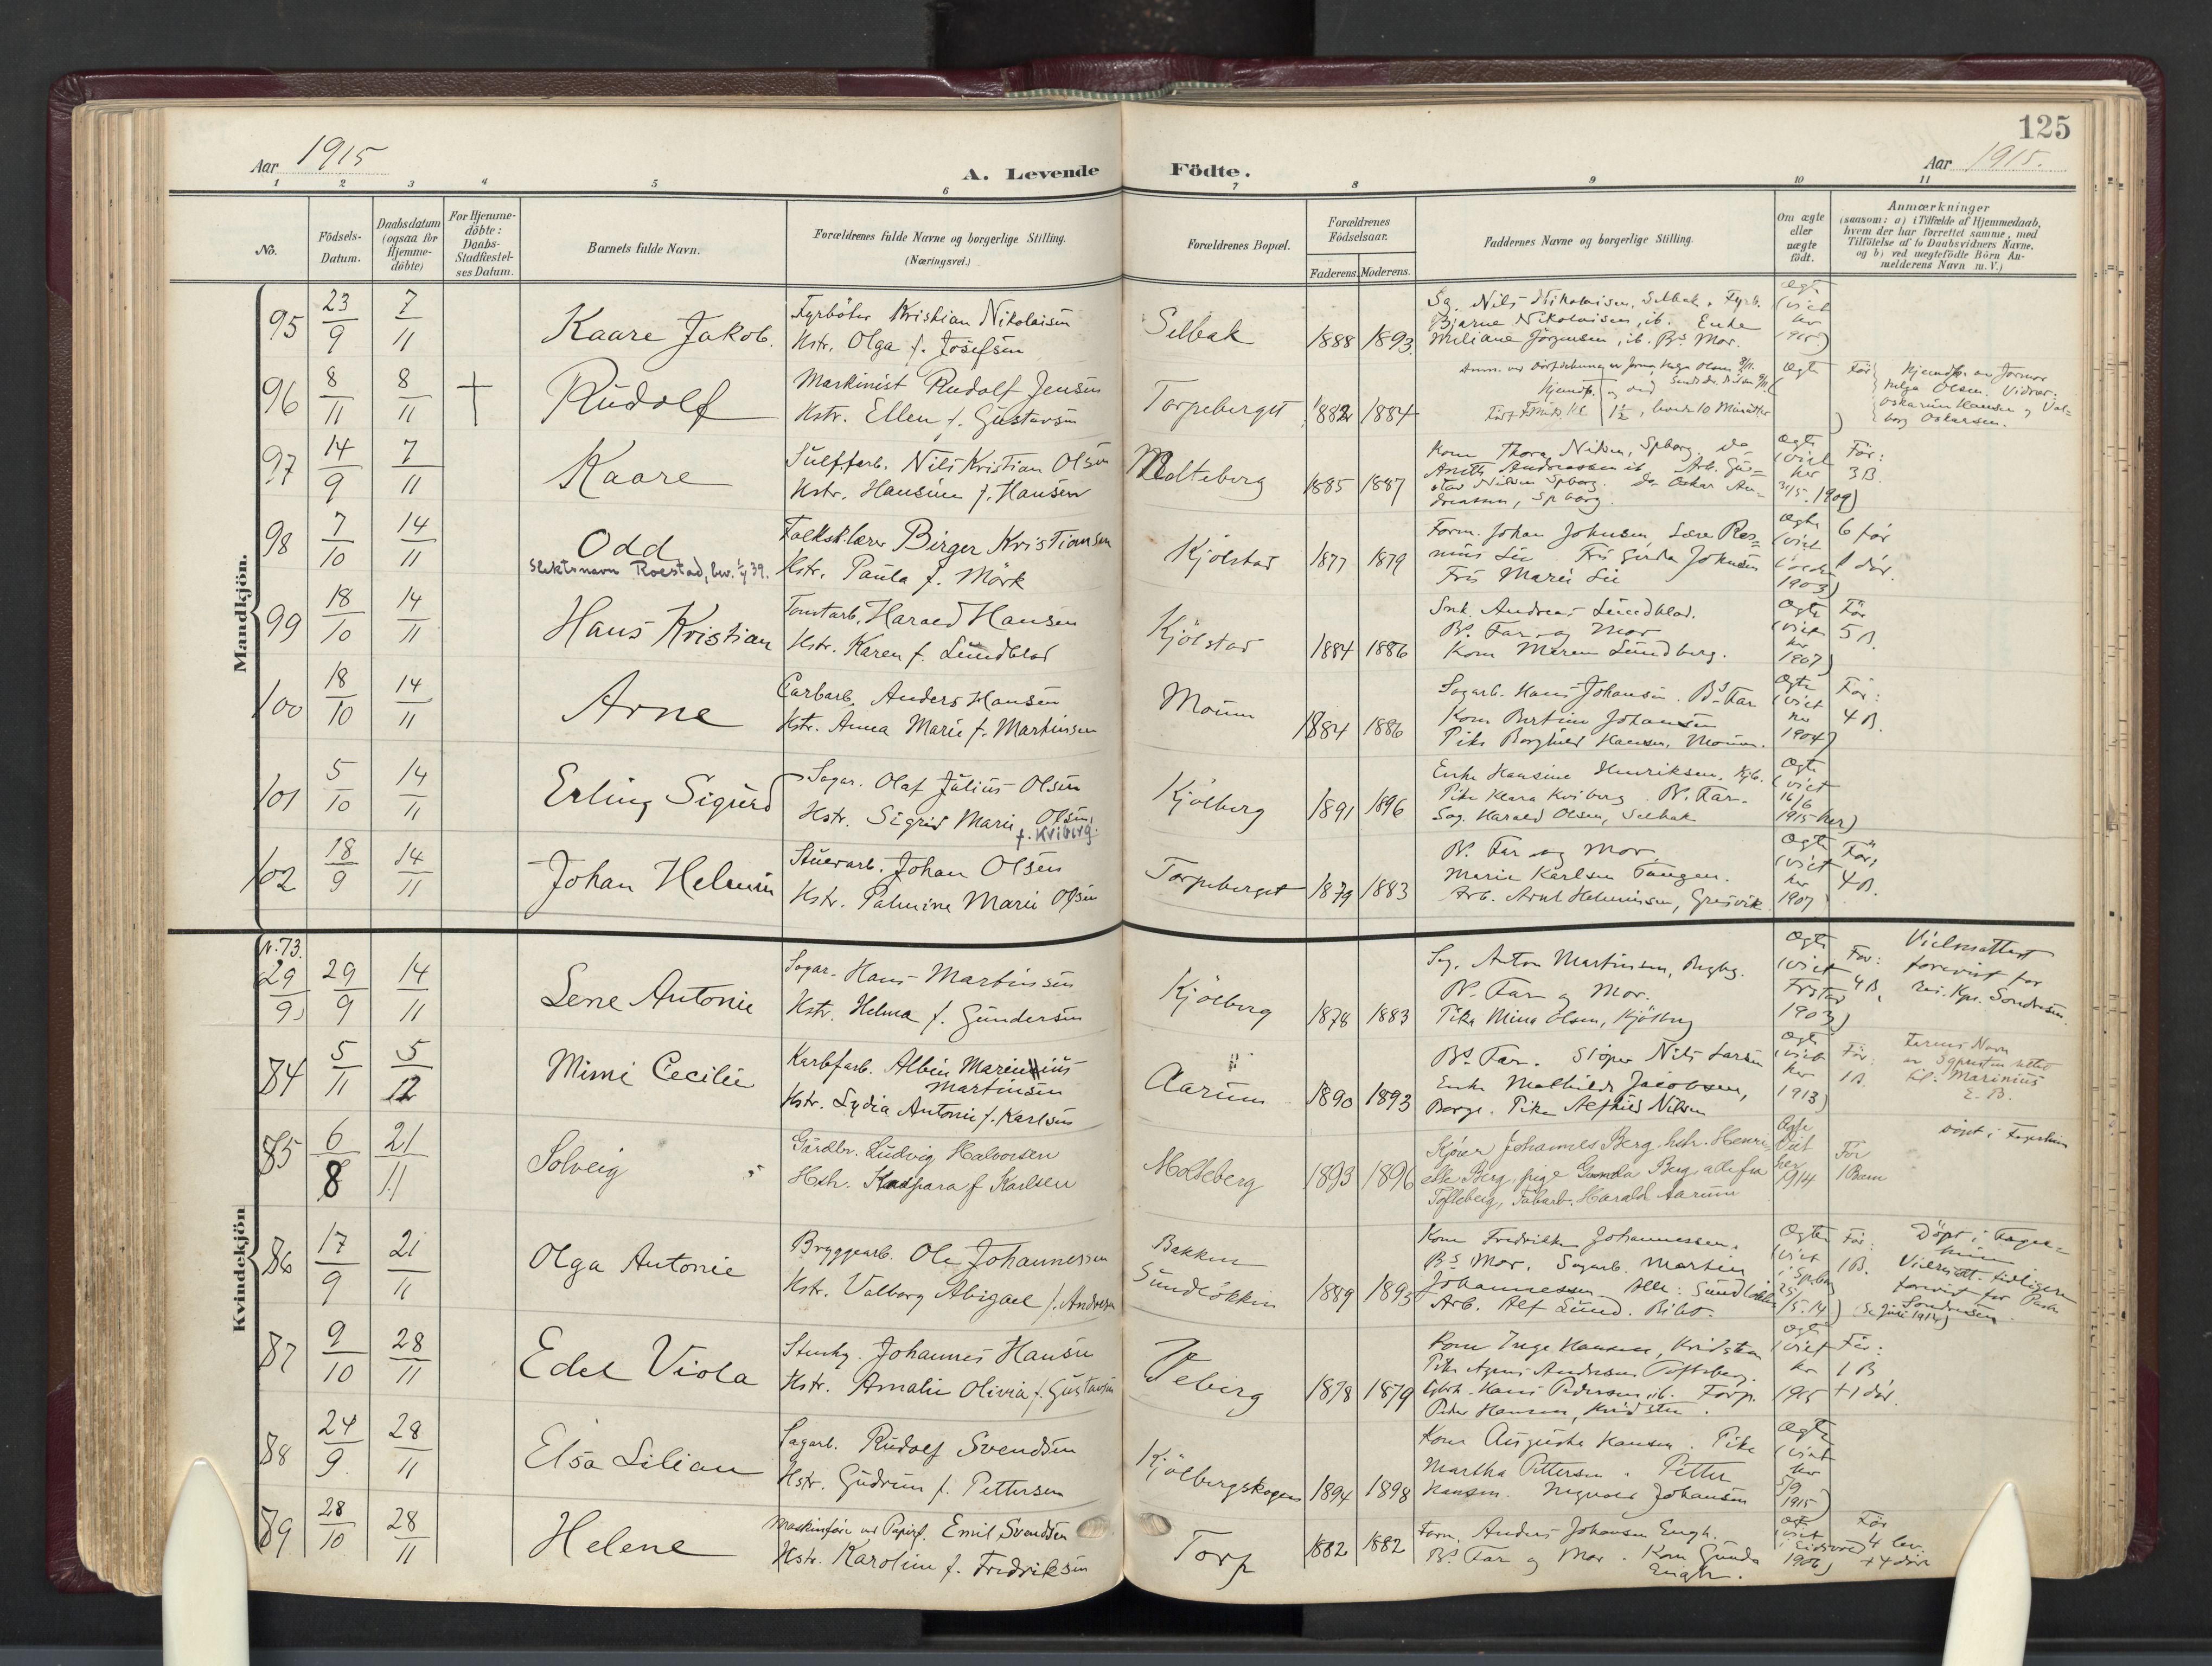 125
Aar 1915
A. Levende Födte.
Aar 1915.
1 2 3 4 5 6 7 8 9 10 11
No.
Födsels-Datum.
Daabsdatum (ogsaa for Hjemme-döbte)
For Hjemme-döbte: Daabs-Stadfæstel-ses Datum.
Barnets fulde Navn.
Forældrenes fulde Navne og borgerlige Stilling. (Næringsvei.)
Forældrenes Bopæl.
Forældrenes Födselsaar.
Faderens. Moderens.
Faddernes Navne og borgerlige Stilling.
Om ægte eller uægte födt.
Anmærkninger
(saasom: a) i Tilfælde af Hjemmedaab,
hvem der har forrettet samme, med
Tilföielse af to Daabsvidners Navne,
og b) ved uægtefödte Börn An-
melderens Navn m. V.)
Mandkjön.
95 23/9 7/11 Kaare Jakob. Fyrböter Kristian Nikolaisen
Hstr. Olga f. Josefsen
Selbak 1888 1893.
Sg. Nils Nikolaisen, Selbak. Fyrb.
Bjarne Nikolaisen, ib. Enke
Miliane Jörgensen, ib. Bs. Mor.
96 8/11 8/11 † Rudolf Maskinist Rudolf Jensen
Hstr. Ellen f. Gustavsen
Torpeberget 1882 1884 Ægte
Hjemdp. av Jormor
Helga Olsen. Vidner:
97 14/9 7/11 Kaare Sulffarb. Nils Kristian Olsen
Hstr. Hansine f. Hansen
Molteberg 1885 1887
Kone Thora Nilsen, Spborg
Ægte (viet her 31/5. 1909) Før: 3 B.
98 7/10 14/11 Odd
Slektsnavn Roestad, bev. 39.
Folkesk.lærer Birger Kristiansen
Hstr. Paula f. Mörk
Kjölstad 1877 1879
Form. Johan Johnsen, Lære Ras-
mus Lie Frk Gerda Johnsen
Frk Marie Lie
Ægte (viet 1903) 6 før 1 död.
99 18/10 14/11 Hans Kristian Tomtarb. Harald Hansen
Hstr. Karen f. Lundblad
Kjölstad 1884 1886
Snk. Andreas Lundblad.
Bs. Far og Mor
Kone Maren Lundberg.
Ægte (viet her 1907) Før 5 B.
100 18/10 14/11 Arne Carbarb. Anders Hansen
Hstr. Anna Marie f. Martinsen
Moum 1884 1886
Sagarb. Hans Johansen. Bs. Far
Kone Bertine Johansen
Pike Borghild Hansen, Moum.
Ægte (viet her 1904) Før: 4 B.
101 5/10 14/11 Erling Sigurd Sagar. Olaf Julius Olsen
Hstr. Sigrid Marie Olsen,
f. Kviberg.
Kjölberg 1891 1896
Enke Hansine Henriksen. Kjlb.
Pike Klara Kviberg. Bs. Far.
Sag. Harald Olsen, Selbak
Ægte (viet 16/6 1915 her)
102 18/9 14/11 Johan Helmin Stuerarb. Johan Olsen
Hstr. Palmine Marie Olsen
Torpeberget 1879 1883
Bs. Far og Mor.
Marie Karlsen Tangen.
Arb. Arnt Helminsen, Gresvik
Ægte (viet her 1907 Før: 4 B.
Kvindekjön
N. 73. 29/9) 29/9 14/11 Lene Antonie Sagar. Hans Martinsen
Hstr. Helma f. Gundersen
Kjölberg 1878 1883
Sag. Anton Martinsen, Rygbg.
Bs. Far og Mor.
Pike Mina Olsen, Kjölberg
Ægte (viet Frstad 1903) Før: 4 B.
Vielsesattest
forevist for
res. Kpl. Sondresen.
84 5/11 5/12 Mimi Cecilie Karbfarb. Albin Marinius
Martinsen
Hstr. Lydia Antonie f. Karlsen
Aarum 1890 1893
Bs. Far. Slöper Nils Larsen
Enke Mathilde Jacobsen,
Borge. Pike Alfhild Nilsen
Ægte (viet her 1913) Før: 1 B.
Farens Navn
til: Marinius
E. B.
85 6/8 21/11 Solveig Gårdbr. Ludvig Halvorsen
Hstr. Kaspara f Karlsen
Molteberg 1893 1896
Kjörer Johannes Berg hstr. Henri-
ette Berg pige Gunda Berg alle fra
Tofteberg, Fabarb. Harald Aarum
Ægte Viet her 1914 Før 1 Barn
döpt i Fagerheim
86 17/9 21/11 Olga Antonie Bryggearb. Ole Johannessen
Hstr. Valborg Abigael f. Andresen
Bakken
Sundlökken 1889 1893
Kone Fredrikke Johannessen.
Bs Mor. Sagarb. Martin
Johannessen. Alle: Sundlökken
Arb. Alf Lund.
Ægte (viet i Spborg 23/5.14) Før: 1 B.
Döpt i Fager-
heim
Vielseatt. tidligere
forevist for Pastor
Sondresen.
(Se Juli 1914)
87 9/10 28/11 Edel Viola Stenhg. Johannes Hansen
Hstr. Amalie Olivia f. Gustavsen
Veberg 1878 1879
Kone Inga Hansen, Kridsten
Pike Agnes Andresen Tofteberg.
Gbrk. Hans Pedersen, ib. Torp.
Peder Hansen, Kridsten.
Ægte (viet her 1905 Før: 1 B + 1 död.
88 24/9 28/11 Elsa Lilian Sagarb. Rudolf Svendsen
Hstr. Gudrun f. Pettersen
Kjölbergskogen 1894 1898
Kone Augusta Hansen. Pike
Martha Pettersen. Petter
Hansen. Johansen
Ægte (viet her 5/9 1915)
89 28/10 28/11 Helene Maskinfører ved Papirf. Emil Svendsen
Hstr. Karoline f. Fredriksen
Torp 1882 1882
Form. Anders Johansen Engh.
Bs. Far og Mor. Kone Gunda
Engh.
(viet i Eidsvold 1906) Før 4 lev. + 4 döde